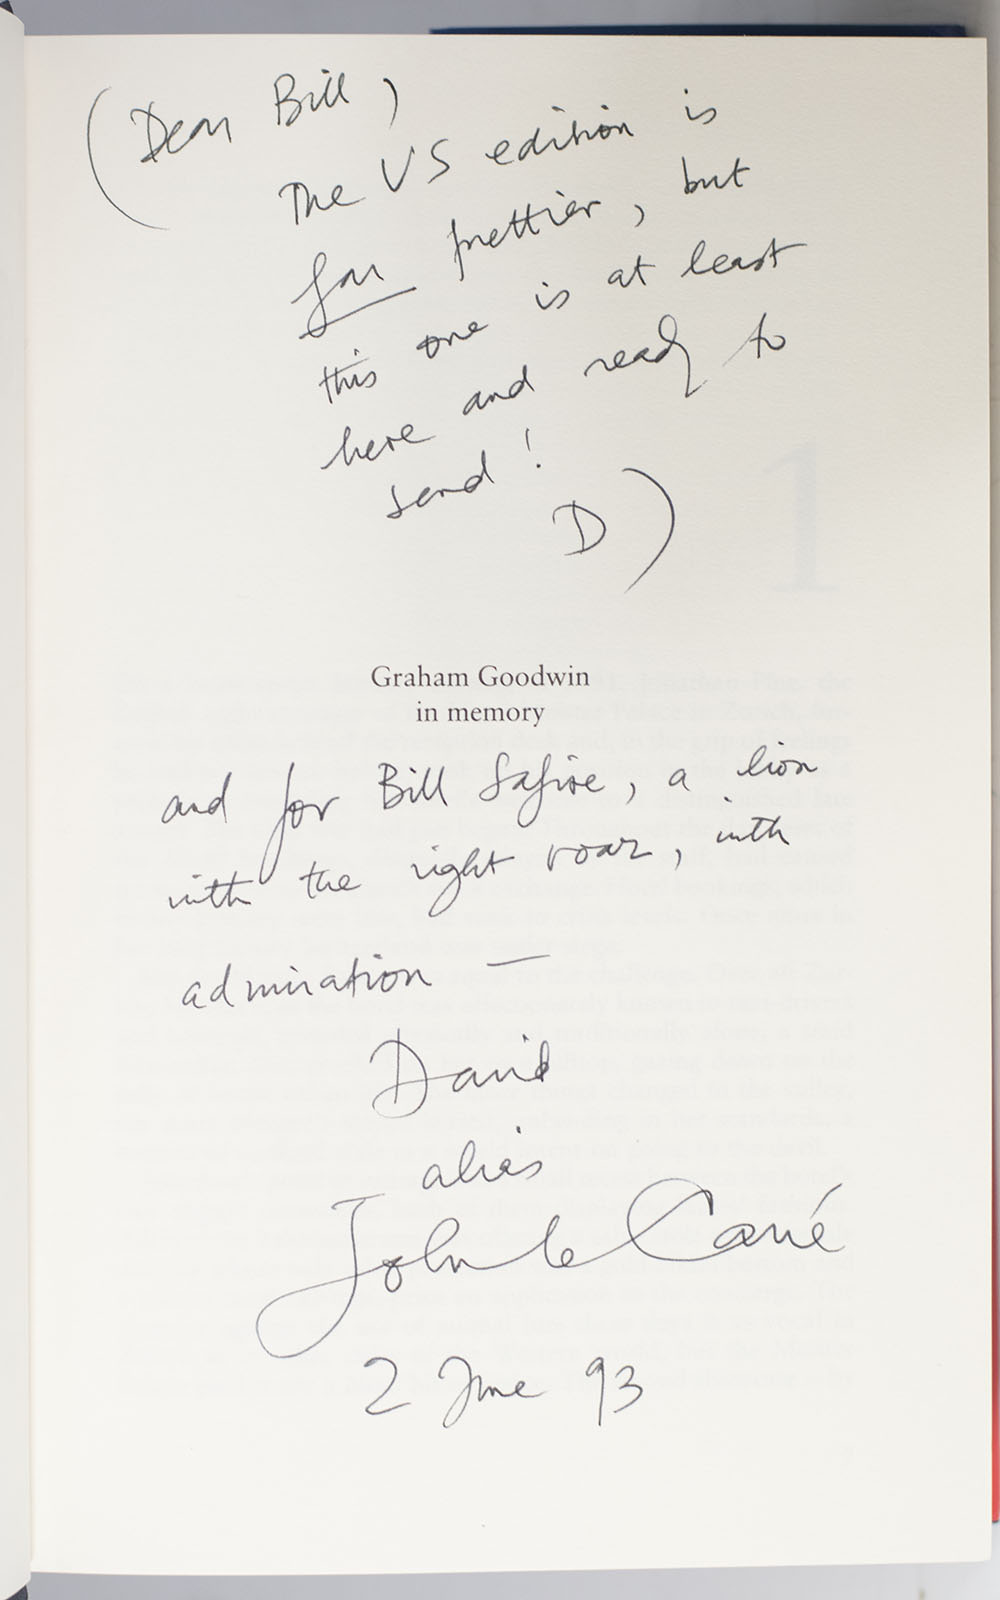 (Dear Bill,
The US edition is
far prettier, but
this one is at least
here and ready to
send!
D)
1
Graham Goodwin
in memory
and for Bill Safire, a lion
with the right roar, with
admiration —
David
alias
John le Carré
2 June 93